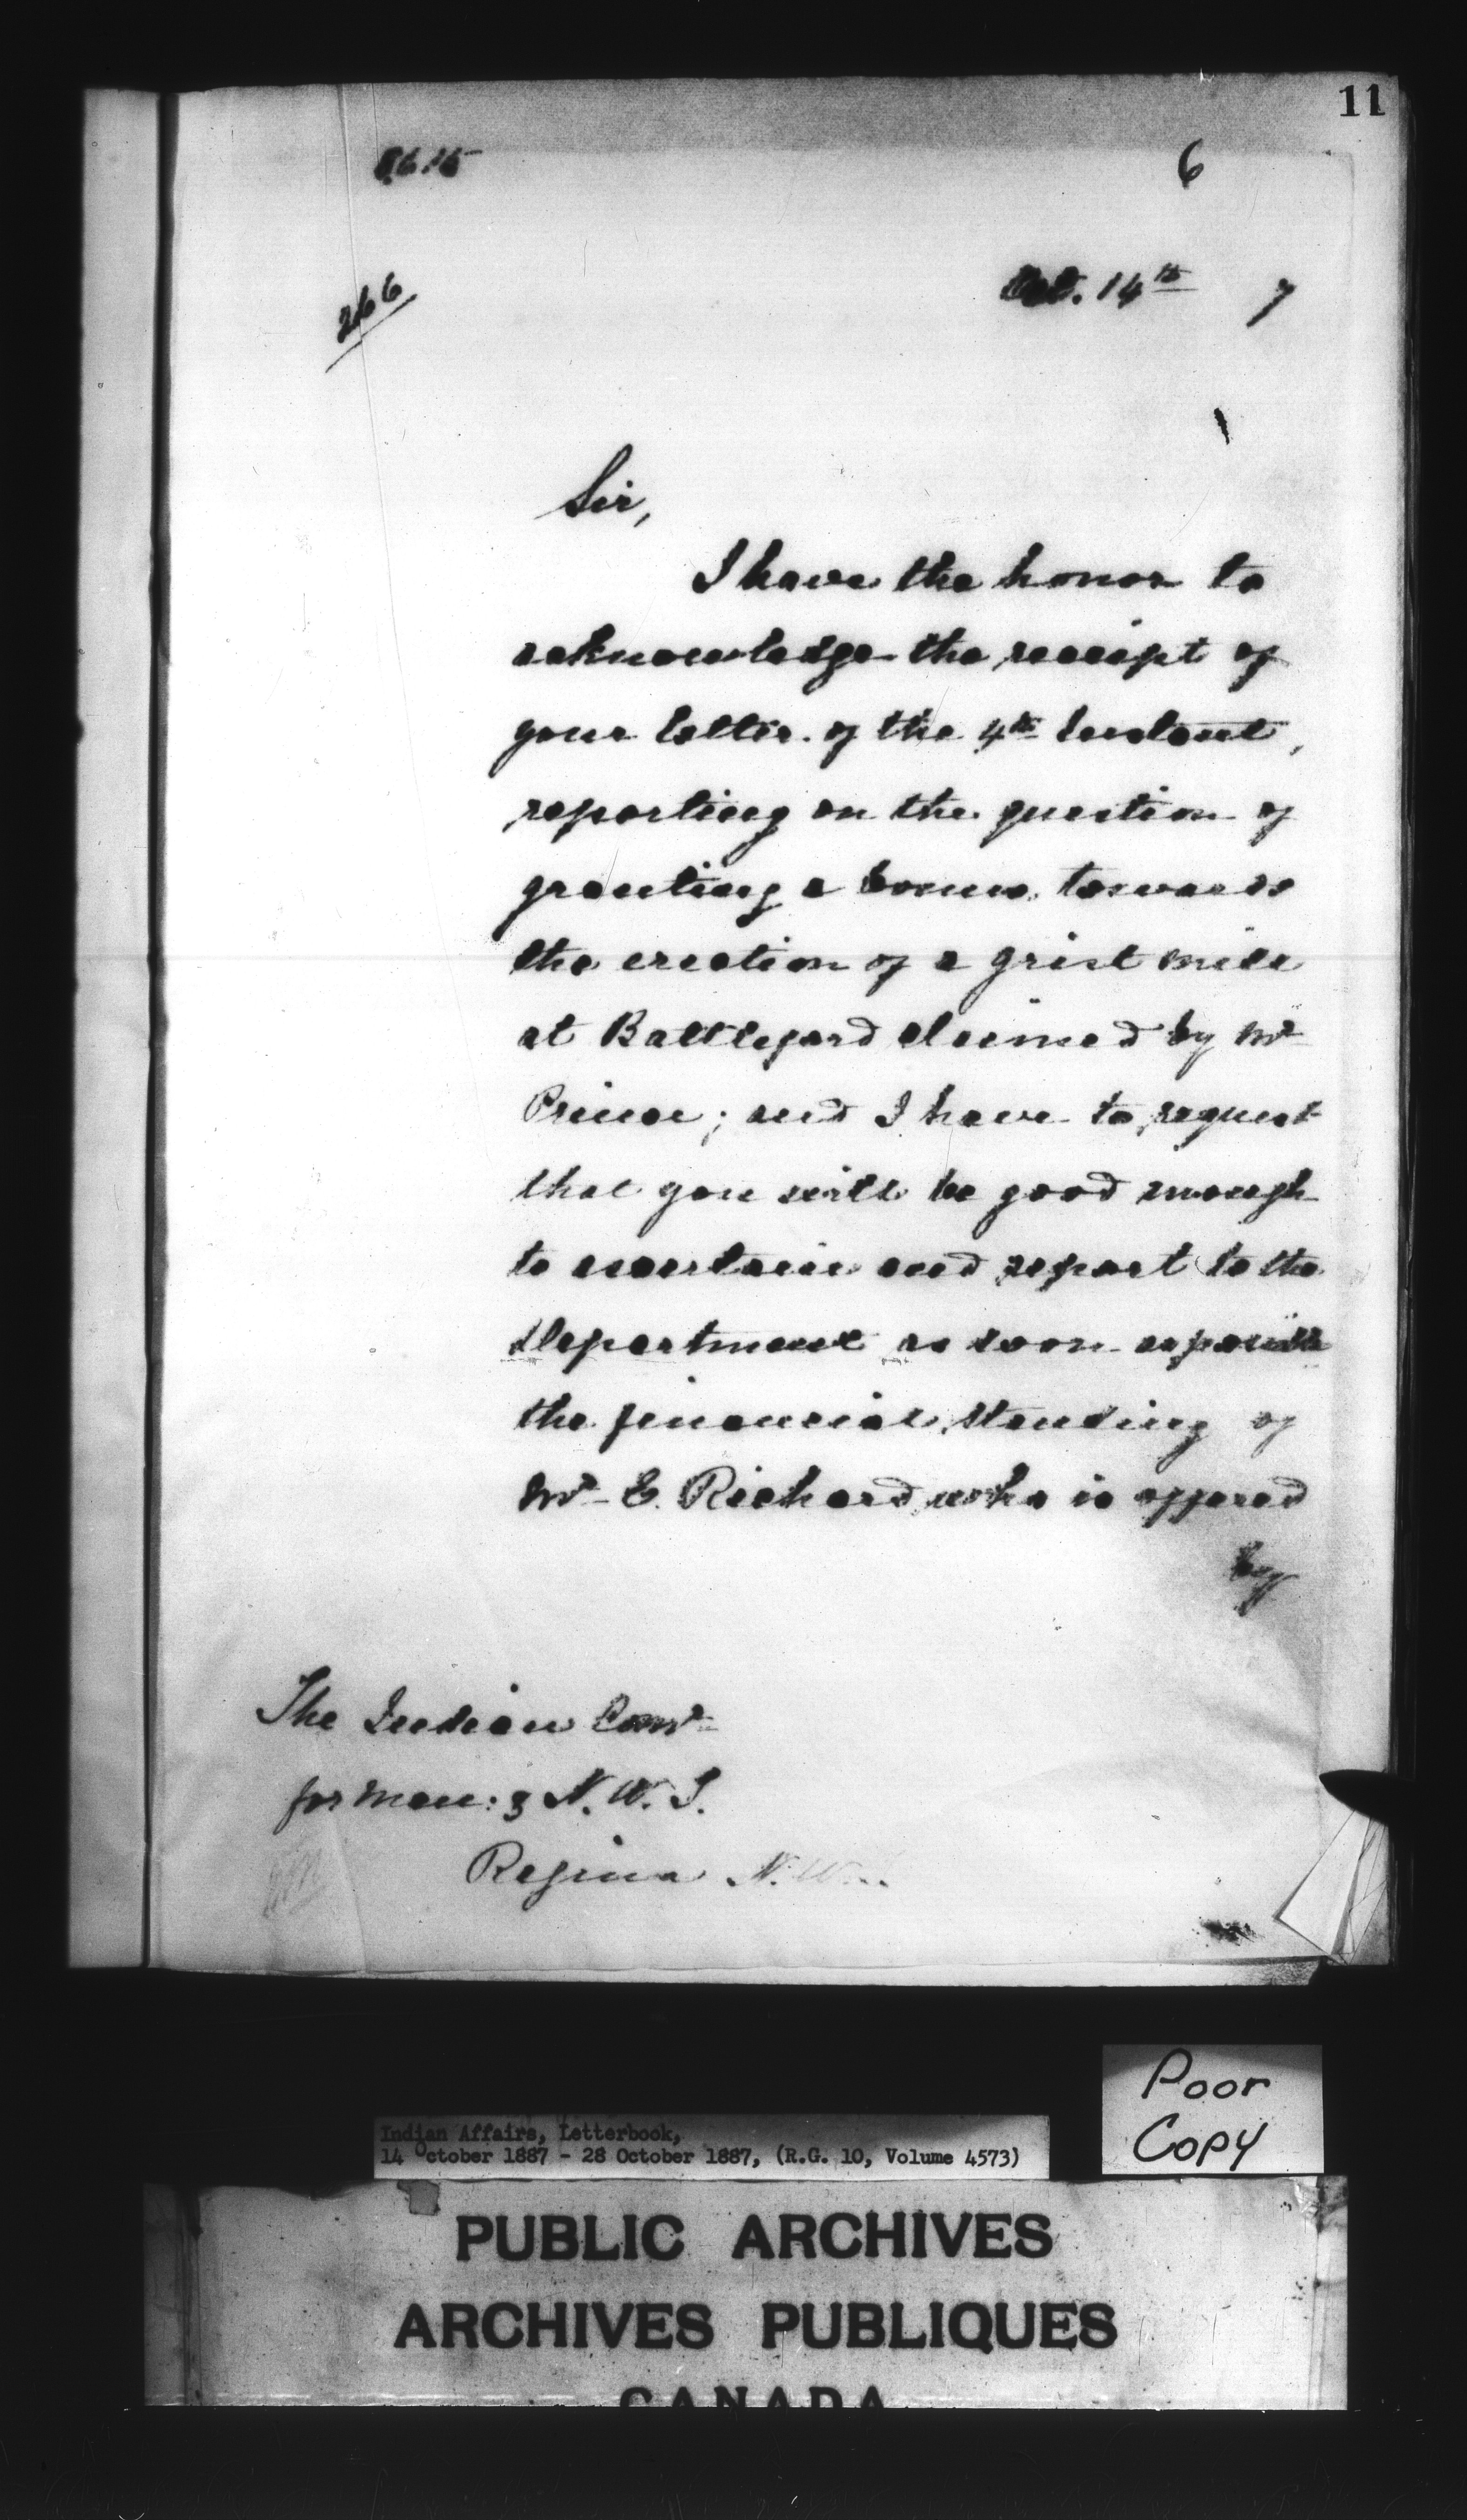 11
6
266
Oct. 14th 7
Sir,
I have the honor to
acknowledge the receipt of
your letter of the 4th Instant,
reporting on the question of
granting a bonus towards
the erection of a grist mill
at Battleford claimed by Mr
Prince; and I have to request
that you will be good enough
to ascertain and report to the
Department as soon as possible
the financial standing of
Mr E. Richard who is offered
by
The Indian Comr
for Man: & N.W.T.
Regina N.W.
Poor
Copy
Indian Affairs, Letterbook,
14 October 1887 - 28 October 1887, (R.G. 10, Volume 4573)
PUBLIC ARCHIVES
ARCHIVES PUBLIQUES
CANADA